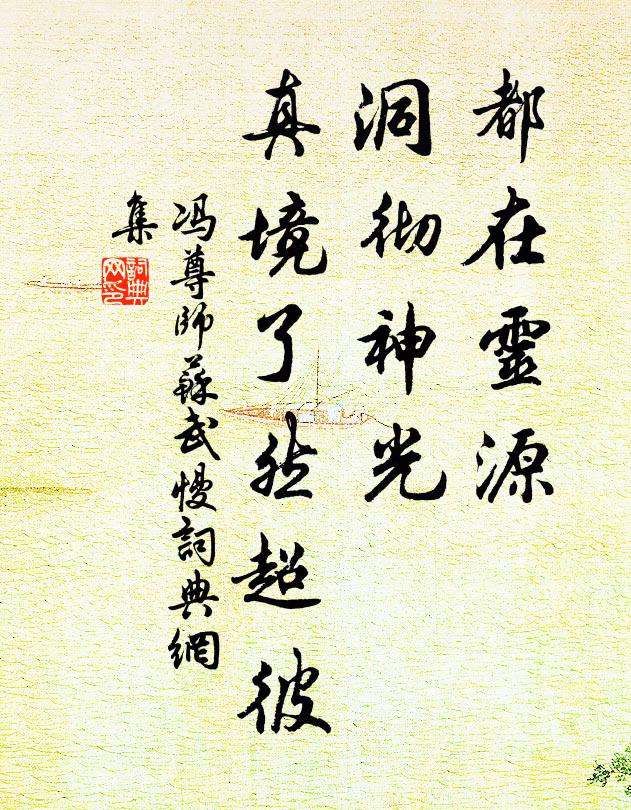 都在靈源
洞彻神光
真境了然超彼
冯尊師蘇武慢詞典網
集
詞典
网印